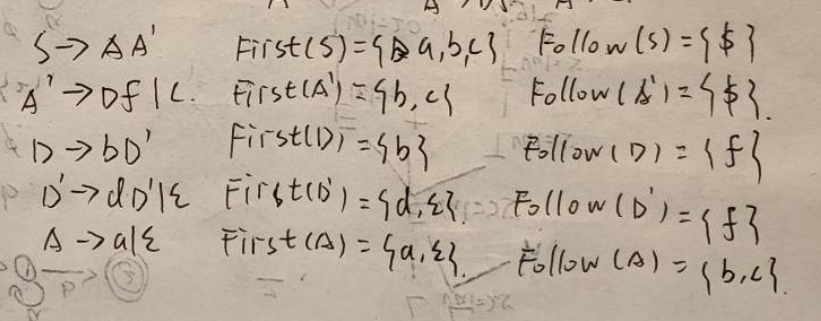 S → A A' First(S) = {a,b,c} Follow(S) = {$}
A' → Df | c. First(A') = {b, c} Follow(A') = {$}.
D → bD' First(D) = {b} Follow(D) = {f}
D' → dD'|ε First(D') = {d,ε}. Follow(D') = {f}
A → a|ε First(A) = {a,ε}. Follow(A) = {b,c}.